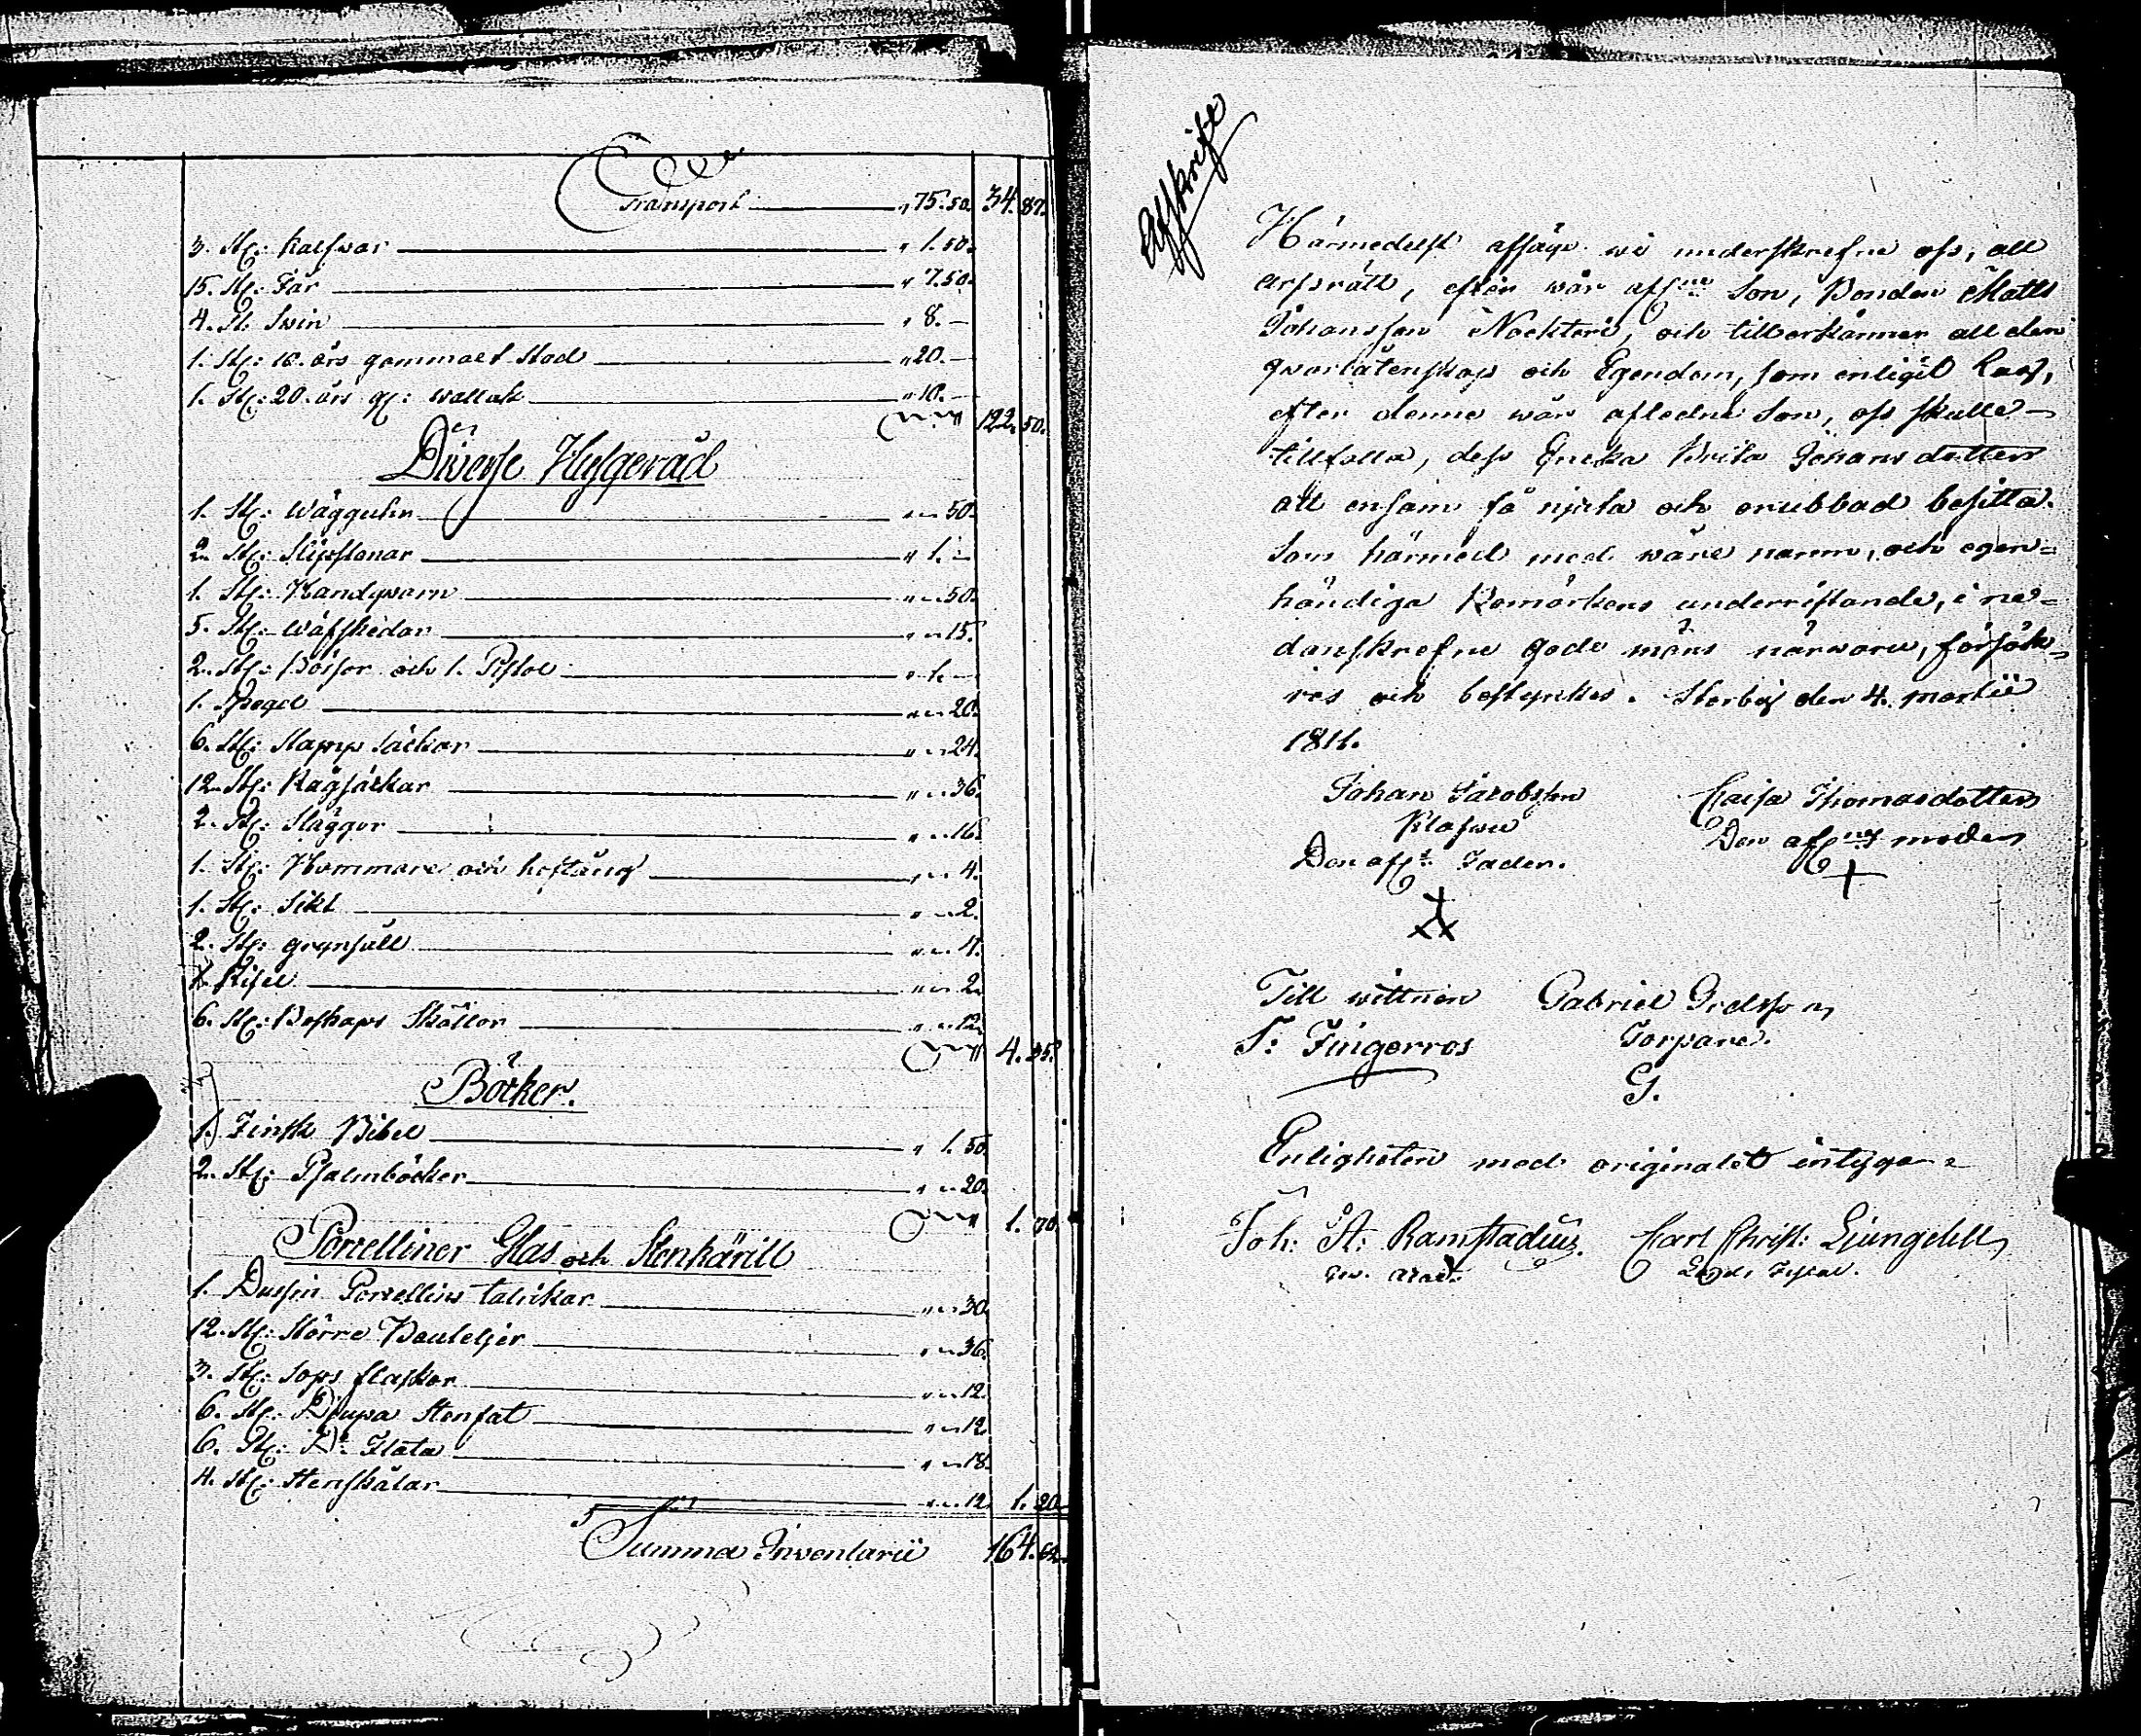 Transport " 75. 50. 34. 87.
3. St: kalfwar " 1. 50.
15. St: Får " 7. 50.
4. St. Swin " 8. —
1. St: 10. års gammalt Stod " 20. —
1. St: 20. års gl: wallak " 10. —
122. 50.
Diverse Husgeråd
1. St: wägguhr " " 50.
2. St: Slipstenar " 1. —
1. St: Handqwarn " " 50.
5. St: wäfskedar " " 15.
2. St: Bössor och 1. Pistol " 1. —
1. Spegel " " 20.
6. St: Kappsäckar " " 24.
12. St: Rågsäckar " " 36.
2. St: Släggor " " 16.
1. St: Hammare och hoftång " " 4.
1. St: Sikt " " 2.
2. St: grynsåll " " 4.
1. " " 2.
6. St: Boskaps Skällor " " 12.
4. 35.
Böcker.
1. Finsk Bibel " 1. 50.
2. St: Psalmböcker " " 20.
1. 70.
Porcelliner Glas och Stenkärill
1. Dussin Porcellins talrickar " " 30.
12. St: Större Bouteljer " " 36.
3. St: Sops flaskor " " 12.
6. St: Djupa Stenfat " " 12.
6. St: D:o Flata " " 18.
4. St: Stenskålar " " 12. 1. 20.
Summa Inventarii 164. 62.
Afskrift
Härmedelst afsäge wi underskrefne oss, all
arfsrätt, efter wår afl:ne Son, Bonden Matts
Johansson Nockteri, och tillerkänner all den
qvarlåtenskap och Egendom, som enligit Lag,
efter denne wår afledne Son, oss skulle
tillfalla, dess Encka Brita Johans dotter
att ensam få njuta och orubbad besitta.
Som härmed med wåre namn, och egen=
händiga Bomärkens underristande, i ne=
danskrefne gode mäns närwaro, försäk=
ras och bestyrkes. Storby den 4. martii
1811.
Johan Jacobsson Caisa Thomasdotter
Klafwu Den afl:nes moder
Den afl:s Fader.
Till wittnen Gabriel Gretsson
F: Fingerroos Torpare.
G.
Enligheten med originalet intyga
Joh: A: Ramstadius. Carl Christ: Ljungdell